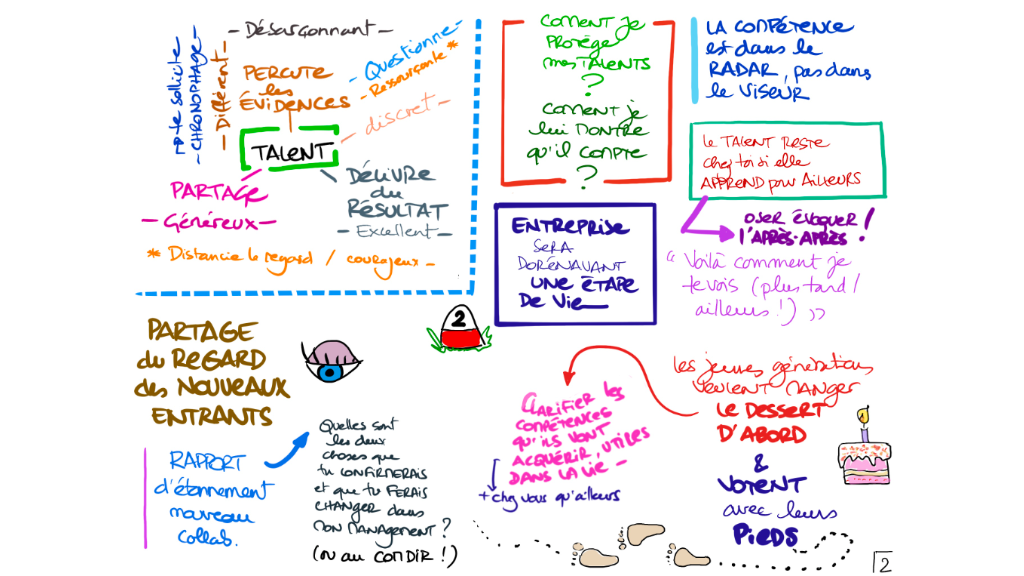 - Désarçonnant -
- pte sollicite
- CHRONOPHAGE -
- Différent -
PERCUTE
les
ÉVIDENCES
- Questionne -
- Ressourçante *
- discret -
TALENT
PARTAGE
- Généreux -
DÉLIVRE
du
RÉSULTAT
- Excellent -
* Distancie le regard / courageux -
COMENT je
PROTÉGE
mes TALENTS
?
COMENT je
lui MONTRE
qu'il COMPTE
?
LA COMPÉTENCE
est dans le
RADAR, pas dans
le VISEUR
Le TALENT RESTE
chez toi si elle
APPREND pour AILLEURS
OSER ÉVOQUER !
l'APRÈS-APRÈS !
"Voilà comment je
te vois (plus tard /
ailleurs !) »
ENTREPRISE
SERA
DORÉNAVANT
UNE ÉTAPE
DE Vie
2
PARTAGE
du REGARD
des NOUVEAUX
ENTRANTS
RAPPORT
d'étonnement
nouveau
collab.
Quelles sont
les deux
choses que
tu CONFIRMERAIS
et que tu FERAIS
CHANGER dans
MON MANAGEMENT ?
(ou au CONDIR !)
CLARIFIER les
COMPÉTENCES
qu'ils VONT
ACQUÉRIR, UTILES
DANS LA VIE -
+ chez vous qu'ailleurs
les jeunes générations
VEULENT MANGER
LE DESSERT
D'ABORD
&
VOTENT
avec leurs
PIEDS
2